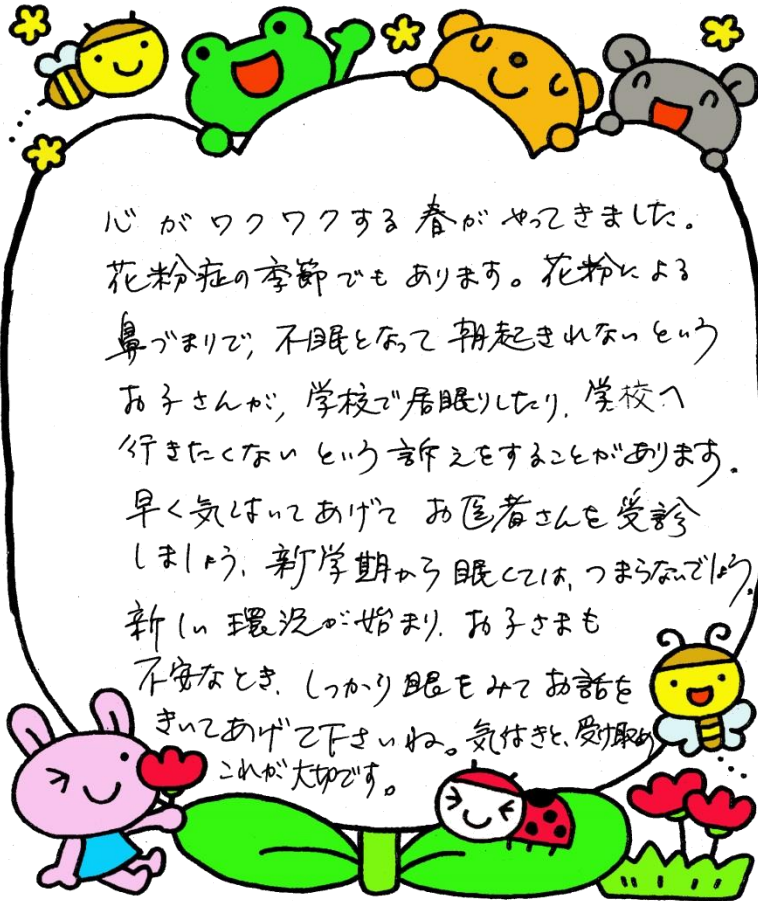 心がワクワクする春がやってきました。
花粉症の季節でもあります。花粉による
鼻づまりで、不眠となって朝起きれないという
お子さんが、学校で居眠りしたり、学校へ
行きたくないという訴えをすることがあります。
早く気付いてあげてお医者さんを受診
しましょう。新学期から眠くては、つまらないでしょう。
新しい環況が始まり、お子さまも
不安なとき、しっかり眼をみてお話を
きいてあげて下さいね。気付きと、受け取め
これが大切です。